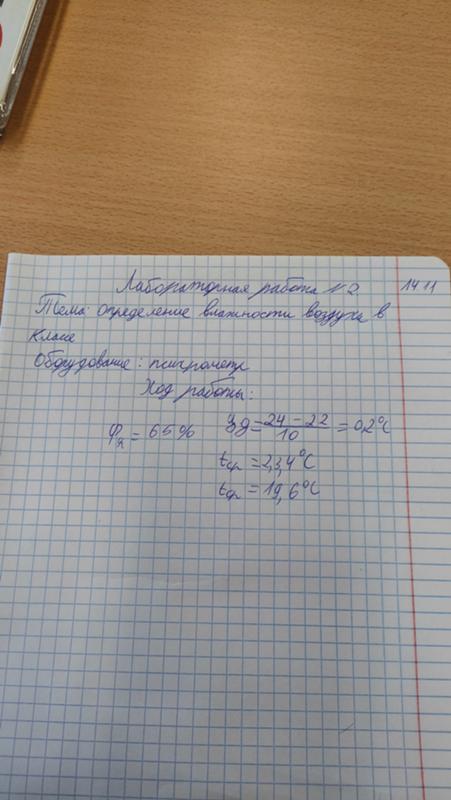 Лабораторная работа №2. 14 11
Тема: определение влажности воздуха в
класе
Оборудование: психрометр
Ход работы:
φя = 65% = 24 - 22 / 10 = 0,2°C
tср = 23,4°C
= 19,6°C